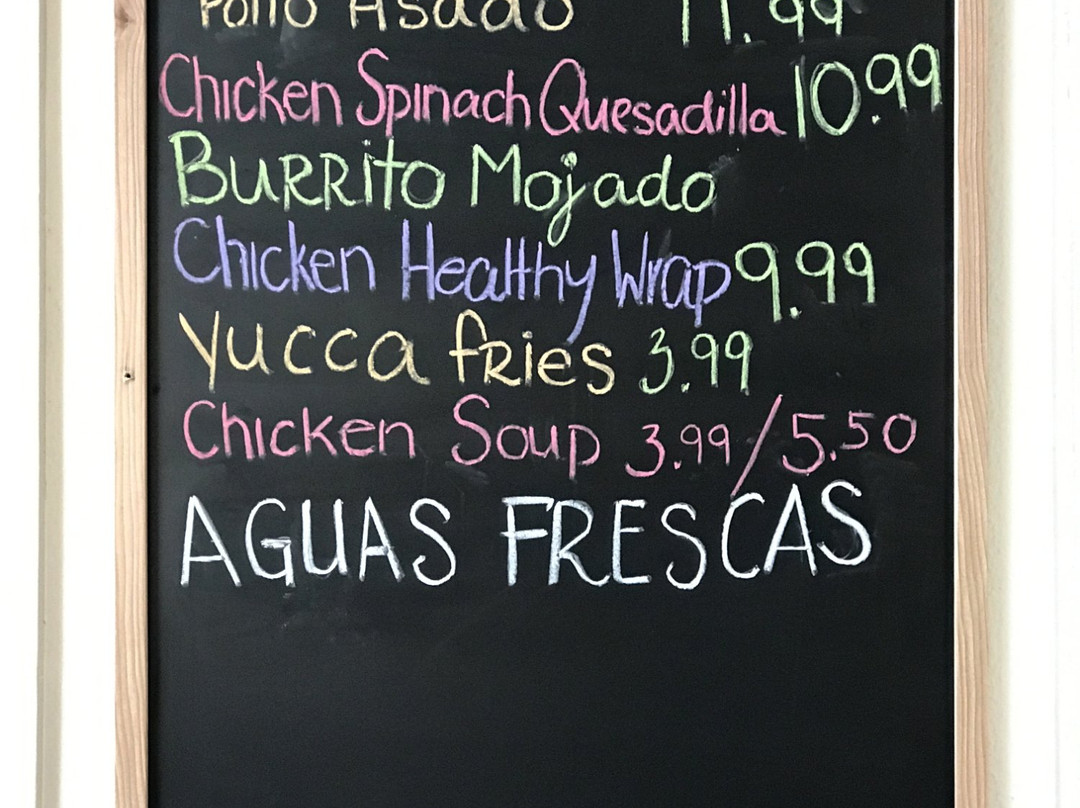 Pollo Asado 11.99
Chicken Spinach Quesadilla 10.99
BURRito Mojado
Chicken Healthy Wrap 9.99
Yucca fRies 3.99
Chicken Soup 3.99/5.50
AGUAS FRESCAS